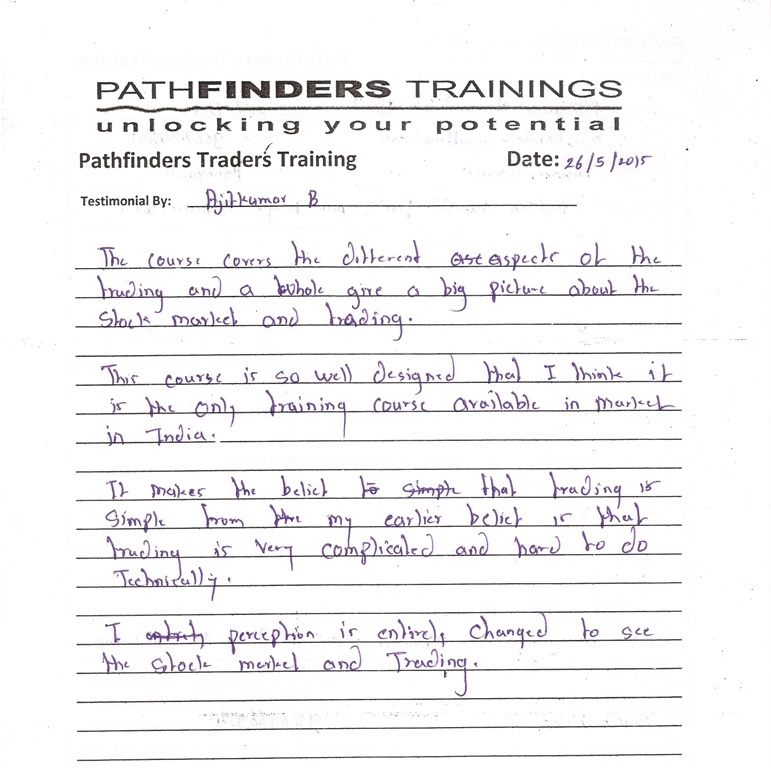 PATHFINDERS TRAININGS
unlocking your potential
Pathfinders Traders Training
Date: 26/5/2015
Testimonial By: Ajitkumar B
The course covers the different aspects of the
trading and a whole give a big picture about the
stock market and trading.
This course is so well designed that I think it
is the only training course available in market
in India.
It makes the belief to simple that trading is
simple from the my earlier belief is that
trading is very complicated and hard to do
Technically.
I perception is entirely changed to see
the stock market and Trading.